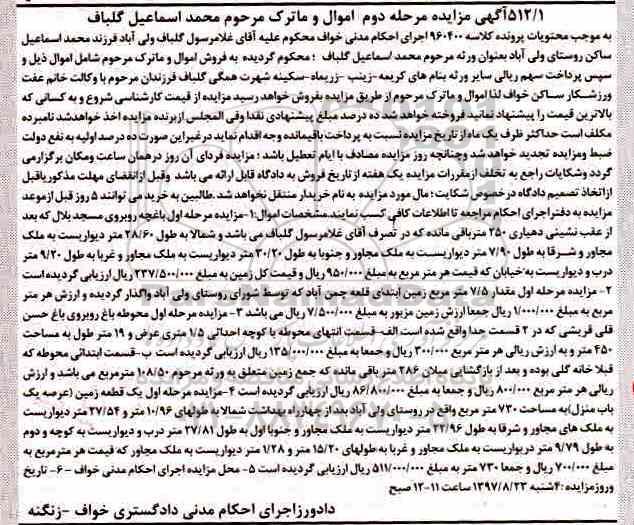 ۵۱۲/۱آگهی مزایده مرحله دوم اموال و ماترک مرحوم محمد اسماعیل گلباف
به موجب محتویات پرونده کلاسه ۹۶۰۴۰۰ اجرای احکام مدنی خواف محکوم علیه آقای غلامرسول گلباف ولی آباد فرزند محمد اسماعیل
ساکن روستای ولی آباد بعنوان ورثه مرحوم محمد اسماعیل گلباف ؛ محکوم گردیده به فروش اموال و ماترک مرحوم شامل اموال ذیل و
سپس پرداخت سهم ریالی سایر ورثه بنام های کریمه-زینب -زرپماه-سکینه شهرت همگی گلباف فرزندان مرحوم با وکالت خانم عفت
ورزشکار ساکن خواف لذا اموال و ماترک مرحوم از طریق مزایده بفروش خواهد رسید مزایده از قیمت کارشناسی شروع و به کسانی که
بالاترین قیمت را پیشنهاد نمایند فروخته خواهد شد ده درصد مبلغ پیشنهادی نقدا وفی المجلس ازبرنده مزایده اخذ خواهدشد نامبرده
مکلف است حداکثر ظرف یک ماه از تاریخ مزایده نسبت به پرداخت باقیمانده وجه اقدام نماید درغیراین صورت ده درصد اولیه به نفع دولت
ضبط ومزایده تجدید خواهد شد وچنانچه روز مزایده مصادف با ایام تعطیل باشد ؛ مزایده فردای آن روز درهمان ساعت ومکان برگزار می
گردد وشکایات راجع به تخلف ازمقررات مزایده یک هفته از تاریخ فروش به دادگاه قابل ارائه می باشد وقبل ازانقضای مهلت مذکور یاقبل
ازاتخاذ تصمیم دادگاه درخصوص شکایت؛ مال مورد مزایده به نام خریدار منتقل نخواهد شد.طالبین به خرید می توانند ۵ روز قبل ازموعد
مزایده به دفتراجرای احکام مراجعه تا اطلاعات کافی کسب نمایند.مشخصات اموال:۱-مزایده مرحله اول باغچه روبروی مسجد بلال که بعد
از عقب نشینی دهیاری ۲۵۰ مترباقی مانده که در تصرف آقای غلامرسول گلباف می باشد و شمالا به طول ۲۸/۶۰ متر دیواریست به ملک
مجاور و شرقا به طول ۷/۹۰ متر دیواریست به ملک مجاور و جنوبا به طول ۳۰/۲۰ متر دیواریست به ملک مجاور و غربا به طول ۹/۲۰ متر
درب و دیواریست به خیابان که قیمت هر متر مربع به مبلغ ۹۵۰/۰۰۰ ریال و قیمت کل زمین به مبلغ ۲۳۷/۵۰۰/۰۰۰ ریال ارزیابی گردیده است
۲- مزایده مرحله اول مقدار ۷/۵ متر مربع زمین ابتدای قلعه چمن آباد که توسط شورای روستای ولی آباد واگذار گردیده و ارزش هر متر
مربع به مبلغ ۱/۰۰۰/۰۰۰ ریال جمعا ارزش زمین مزبور به مبلغ ۷/۵۰۰/۰۰۰ ریال می باشد ۳-مزایده مرحله اول محوطه باغ روبروی باغ حسن
قلی قریشی که در ۲ قسمت جدا واقع شده است الف- قسمت انتهای محوطه با کوچه احداثی ۱/۵ متری عرض و ۱۹ متر طول به مساحت
۴۵۰ متر و به ارزش ریالی هر متر مربع ۳۰۰/۰۰۰ ریال و جمعا به مبلغ ۱۳۵/۰۰۰/۰۰۰ ریال ارزیابی گردیده است ب-قسمت ابتدائی محوطه که
قبلا خانه گلی بوده و بعد از بازگشایی میلان ۲۸۶ متر باقی مانده که جمع زمین متعلق به ورثه مرحوم ۱۰۸/۵۰ مترمربع می باشد و ارزش
ریالی هر متر مربع ۸۰۰/۰۰۰ ریال و جمعا به مبلغ ۸۶/۸۰۰/۰۰۰ ریال ارزیابی گردیده است ۴-مزایده مرحله اول یک قطعه زمین (عرصه یک
باب منزل)به مساحت ۷۳۰ متر مربع واقع در روستای ولی آباد بعد از چهارراه بهداشت شمالا به طولهای ۱۰/۹۶ متر و ۲۷/۵۴ متر دیواریست
به ملک های مجاور و شرقا به طول ۲۲/۹۶ متر دیواریست به ملک مجاور و جنوبا اول به طول ۳۷/۸۱ متر درب و دیواریست به کوچه و دوم
به طول ۹/۷۹ متر دیواریست به ملک مجاور و غربا به طولهای ۱۵/۲۰ متر و ۱/۲۸ متر دیواریست به ملک مجاور که قیمت هر مترمربع به
مبلغ ۷۰۰/۰۰۰ ریال و جمعا ۷۳۰ متر به مبلغ ۵۱۱/۰۰۰/۰۰۰ ریال ارزیابی گردیده است ۵- محل مزایده اجرای احکام مدنی خواف -۶- تاریخ
وروزمزایده :۴شنبه ۱۳۹۷/۸/۲۳ ساعت ۱۱-۱۲ صبح
دادورزاجرای احکام مدنی دادگستری خواف -زنگنه